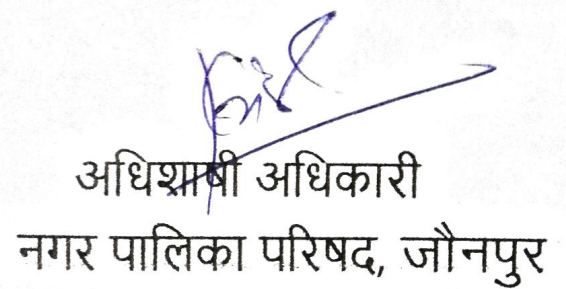 अधिशाषी अधिकारी
नगर पालिका परिषद, जौनपुर